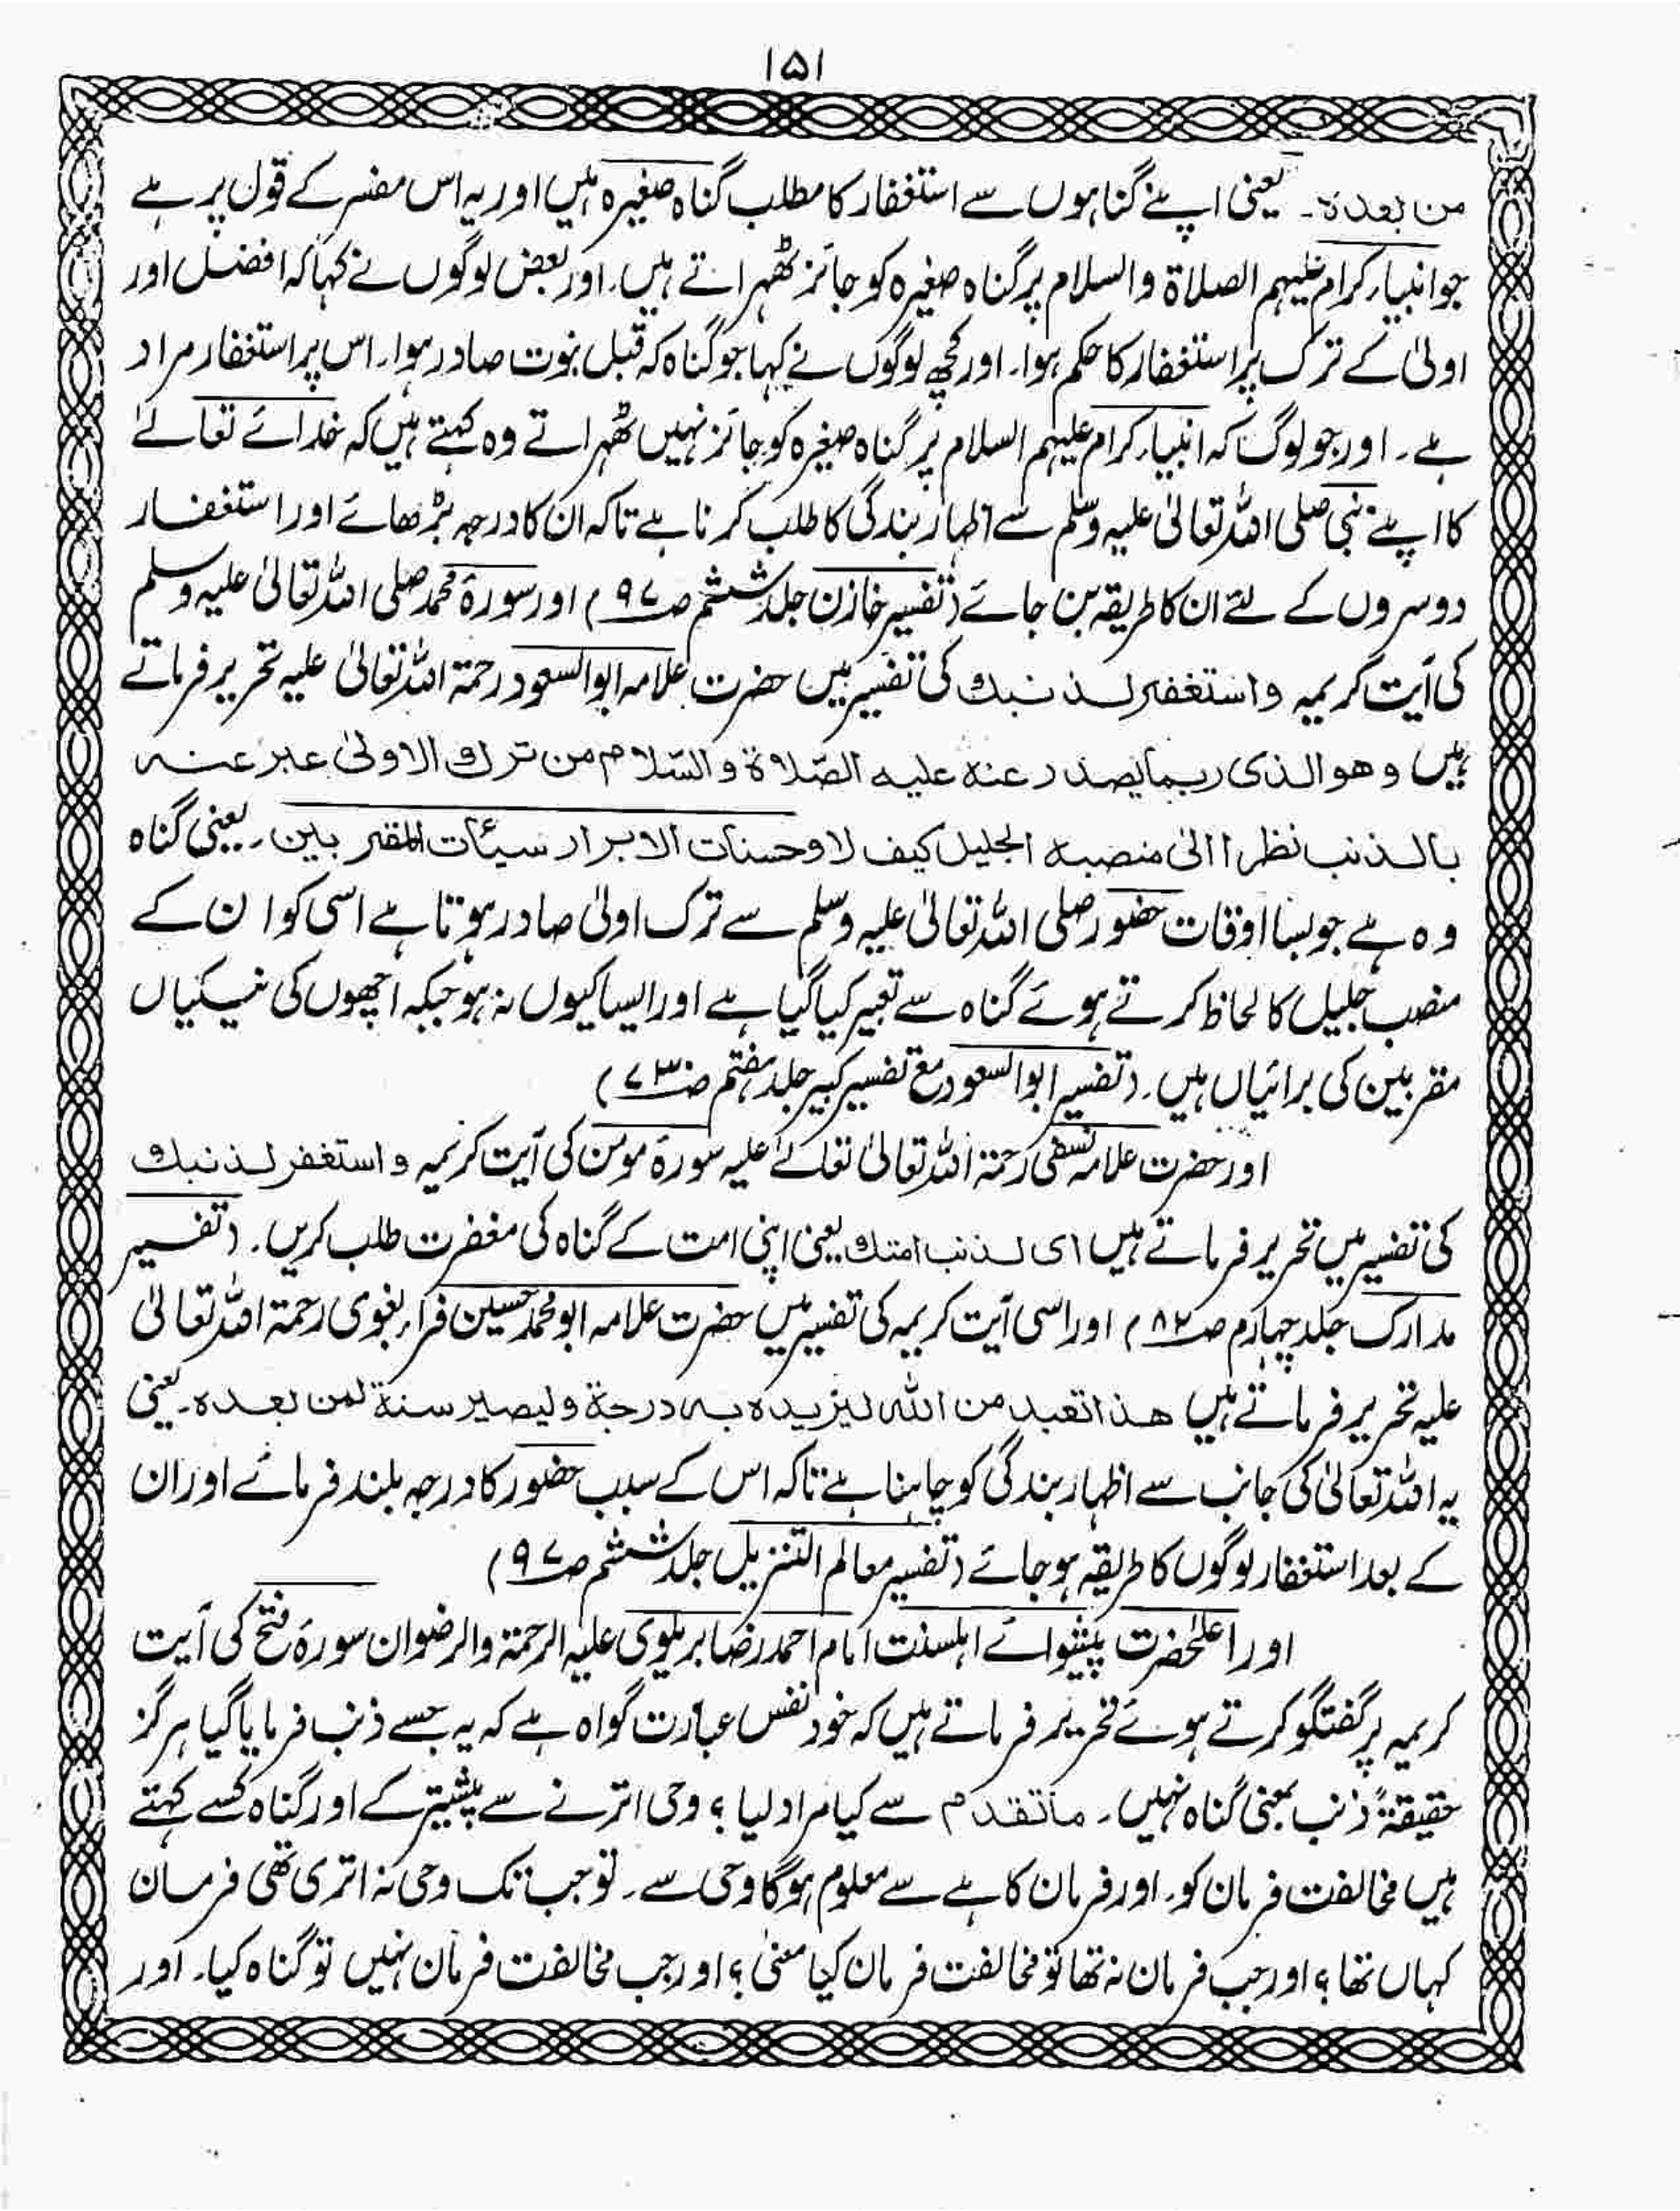 ۱۵۱
من بعدہ۔ یعنی اپنے گناہوں سے استغفار کا مطلب گناہ صغیرہ ہیں اور یہ اس مفسر کے قول پر ہے
جو انبیاء کرام علیہم الصلاۃ والسلام پر گناہ صغیرہ کو جائز ٹھہراتے ہیں۔ اور بعض لوگوں نے کہا کہ افضل اور
اولیٰ کے ترک پر استغفار کا حکم ہوا۔ اور کچھ لوگوں نے کہا جو گناہ کہ قبل نبوت صادر ہوا۔ اس پر استغفار مراد
ہے۔ اور جو لوگ کہ انبیاء کرام علیہم السلام پر گناہ صغیرہ کو جائز نہیں ٹھہراتے وہ کہتے ہیں کہ خدائے تعالےٰ
کا اپنے نبی صلی اللہ تعالیٰ علیہ وسلم سے اظہار بندگی کا طلب کرنا ہے تاکہ ان کا درجہ بڑھائے اور استغفار
دوسروں کے لئے ان کا طریقہ بن جائے (تفسیر خازن جلد ششم ص ۹۷) اور سورۃ محمد صلی اللہ تعالیٰ علیہ وسلم
کی آیت کریمہ واستغفر لذنبک کی تفسیر میں حضرت علامہ ابوالسعود رحمۃ اللہ تعالیٰ علیہ تحریر فرماتے
ہیں وھو الذی ربما یصدر عنہ علیہ الصّلاۃ والسّلام من ترک الاولیٰ عبر عنہ
بالذنب نظرا الیٰ منصبہ الجلیل کیف لا وحسنات الابرار سیئات المقربین۔ یعنی گناہ
وہ ہے جو بسا اوقات حضور صلی اللہ تعالیٰ علیہ وسلم سے ترک اولیٰ صادر ہوتا ہے اسی کو ان کے
منصب جلیل کا لحاظ کرتے ہوئے گناہ سے تعبیر کیا گیا ہے اور ایسا کیوں نہ ہو جبکہ اچھوں کی نیکیاں
مقربین کی برائیاں ہیں۔ (تفسیر ابوالسعود مع تفسیر کبیر جلد ہفتم ص ۷۳)
اور حضرت علامہ نسفی رحمۃ اللہ تعالیٰ تعالےٰ علیہ سورۃ مومن کی آیت کریمہ واستغفر لذنبک
کی تفسیر میں تحریر فرماتے ہیں ای لذنب امتک یعنی اپنی امت کے گناہ کی مغفرت طلب کریں۔ (تفسیر
مدارک جلد چہارم ص ۸۲) اور اسی آیت کریمہ کی تفسیر میں حضرت علامہ ابو محمد حسین فراء بغوی رحمۃ اللہ تعالیٰ
علیہ تحریر فرماتے ہیں ھذا تعبد من اللہ لیزیدہ بہ درجۃ ولیصیر سنۃ لمن بعدہ۔ یعنی
یہ اللہ تعالیٰ کی جانب سے اظہار بندگی کو چاہنا ہے تاکہ اس کے سبب حضور کا درجہ بلند فرمائے اور ان
کے بعد استغفار لوگوں کا طریقہ ہو جائے (تفسیر معالم التنزیل جلد ششم ص ۹۷)
اور اعلیٰحضرت پیشوائے اہلسنت امام احمد رضا بریلوی علیہ الرحمۃ والرضوان سورۃ فتح کی آیت
کریمہ پر گفتگو کرتے ہوئے تحریر فرماتے ہیں کہ خود نفس عبارت گواہ ہے کہ یہ جسے ذنب فرمایا گیا ہرگز
حقیقۃً ذنب بمعنی گناہ نہیں۔ ماتقدم سے کیا مراد لیا؟ وحی اترنے سے پیشتر کے اور گناہ کسے کہتے
ہیں مخالفت فرمان کو۔ اور فرمان کاہے سے معلوم ہوگا وحی سے۔ تو جب تک وحی نہ اتری تھی فرمان
کہاں تھا؟ اور جب فرمان نہ تھا تو مخالفت فرمان کیا معنیٰ؟ اور جب مخالفت فرمان نہیں تو گناہ کیا۔ اور